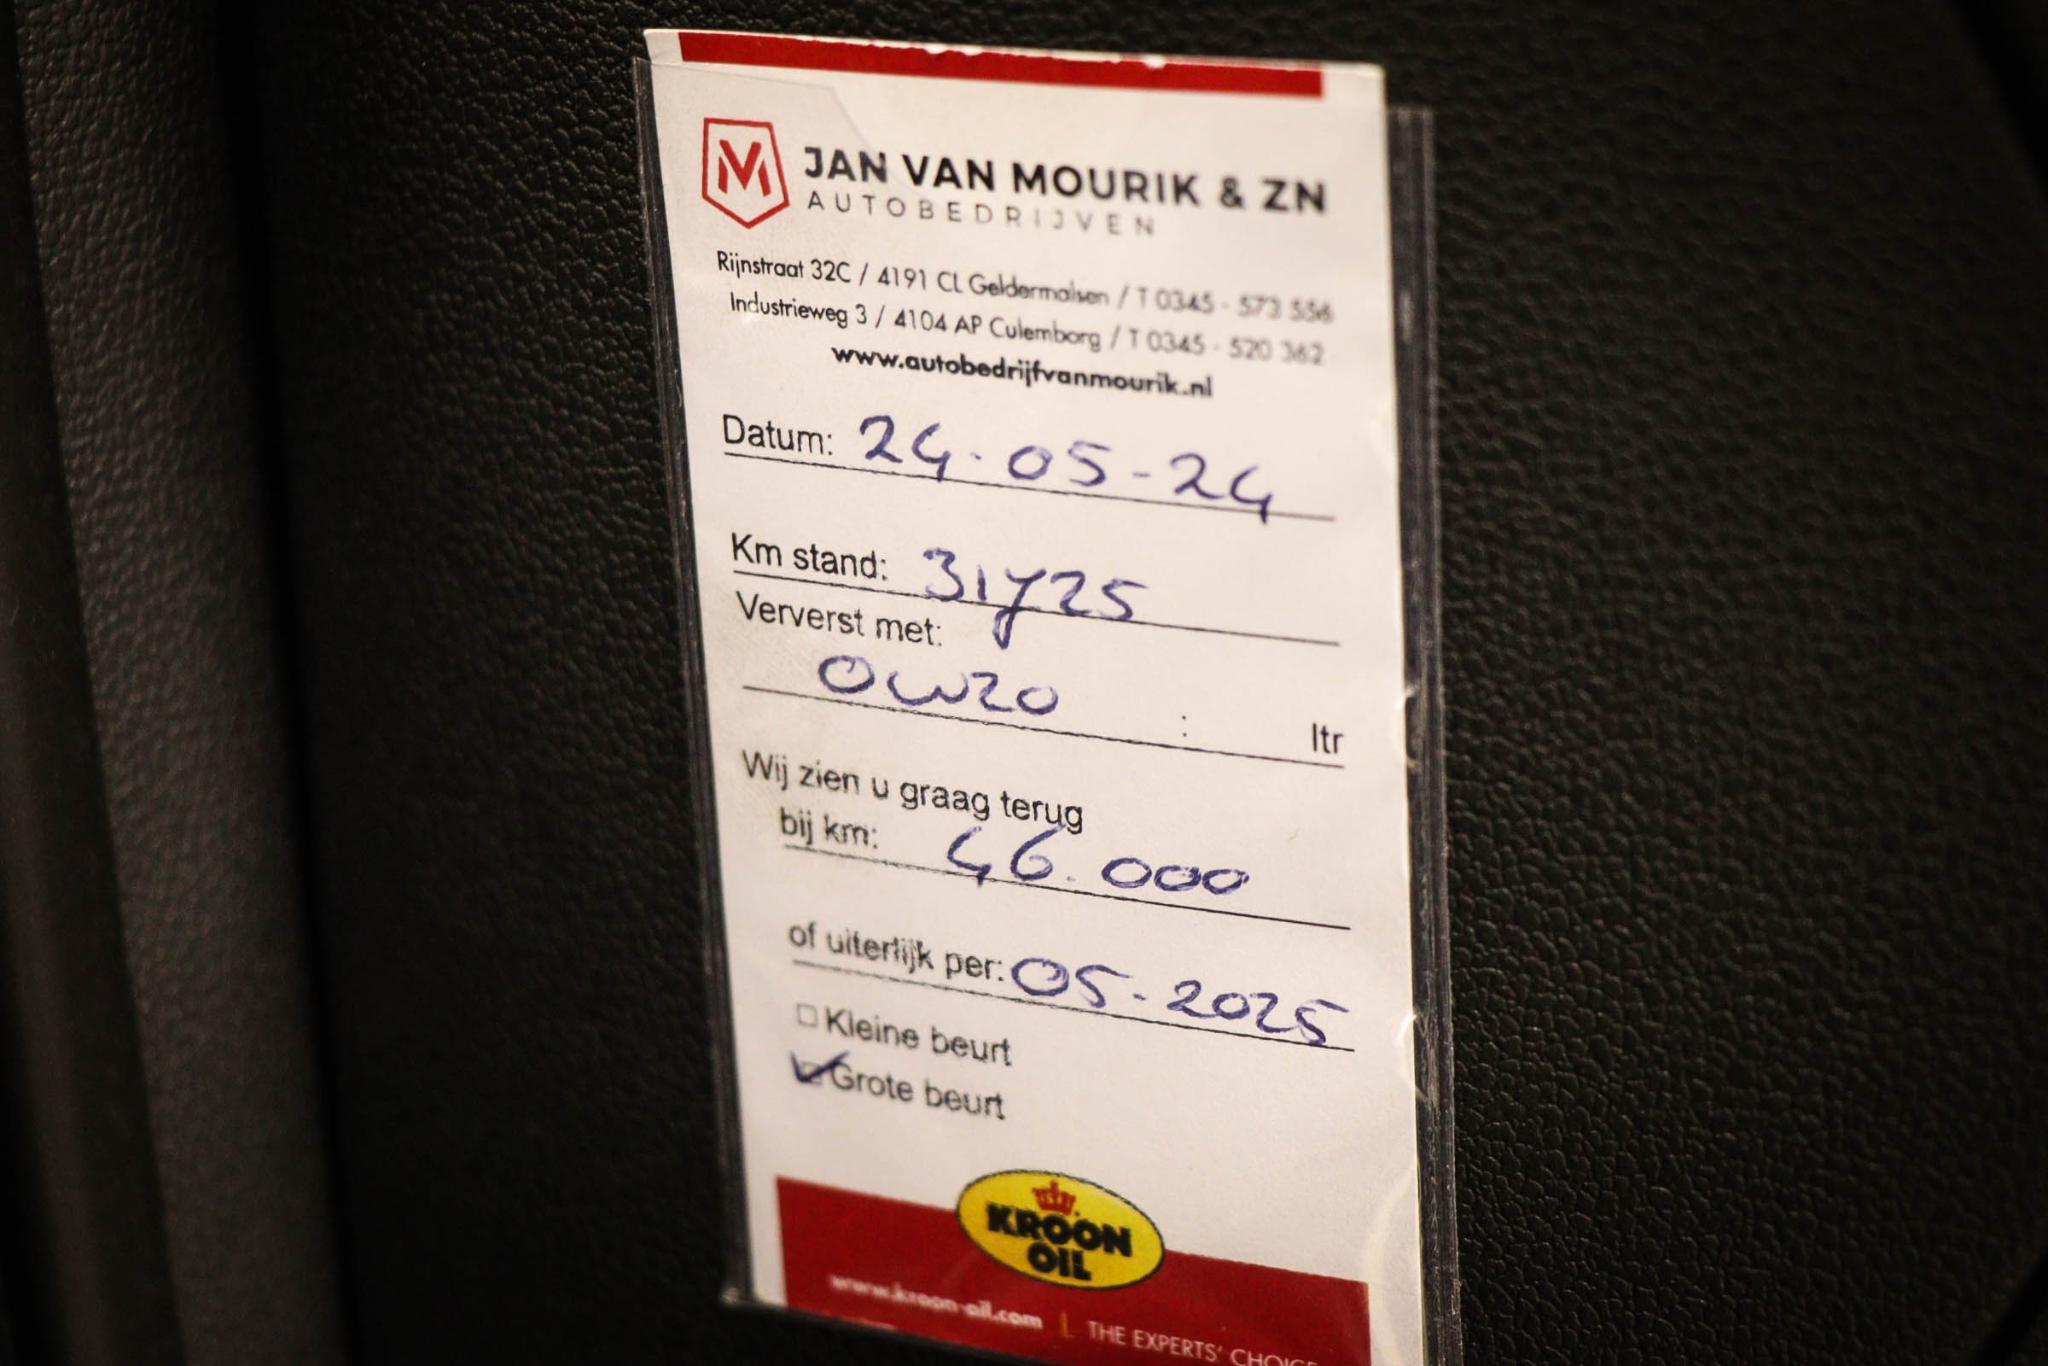 JAN VAN MOURIK & ZN
AUTOBEDRIJVEN
Rijnstraat 32C / 4191 CL Geldermalsen / T 0345 - 573 556
Industrieweg 3 / 4104 AP Culemborg / T 0345 - 520 362
www.autobedrijfvanmourik.nl
Datum: 24-05-24
Km stand: 31725
Ververst met:
0w20 : ltr
Wij zien u graag terug
bij km: 46.000
of uiterlijk per: 05-2025
Kleine beurt
Grote beurt
KROON
OIL
www.kroon-oil.com | THE EXPERTS' CHOICE